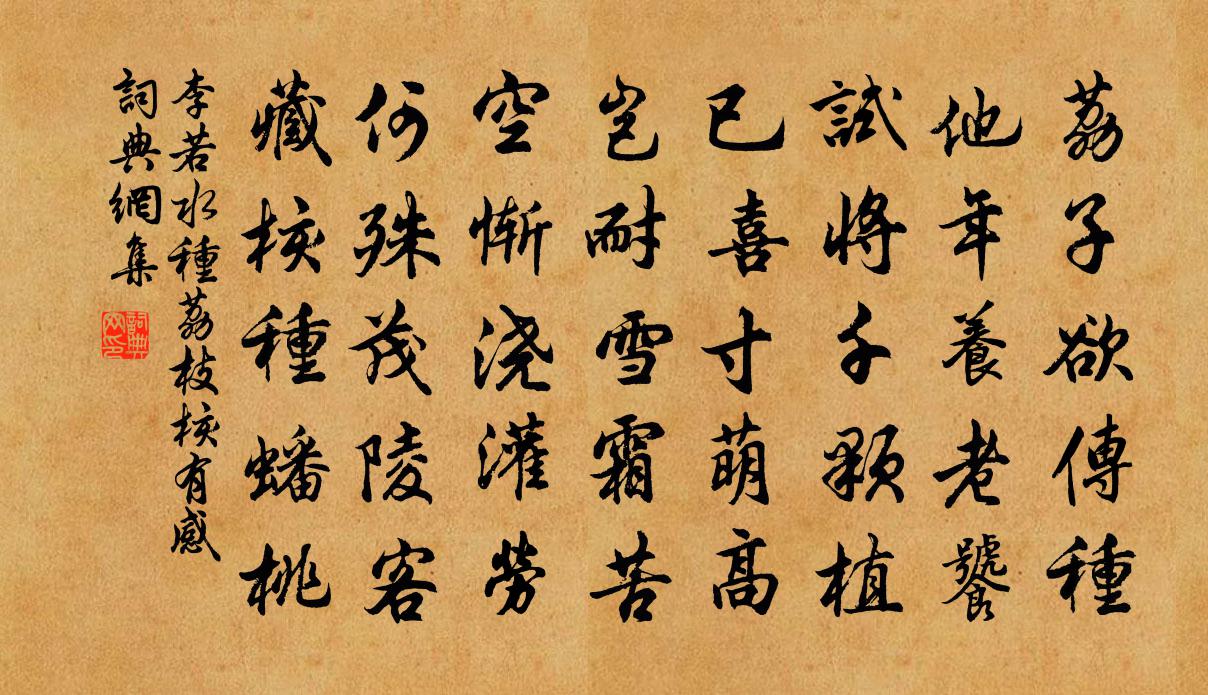 荔子欲傳種
他年養老饕
試將千顆植
已喜寸萌高
豈耐雪霜苦
空慚澆灌勞
何殊茂陵客
藏核種蟠桃
李若水種荔枝核有感
詞典網集
詞典网印